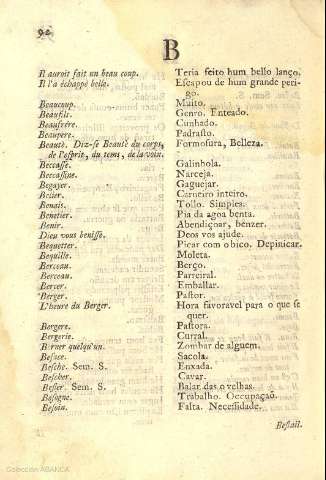 92
B
Il auroit fait un beau coup. Teria feito hum bello lanço.
Il l'a échappé belle. Escapou de hum grande peri-
go.
Beaucoup. Muito.
Beaufils. Genro. Enteado.
Beaufrére. Cunhado.
Beaupere. Padrasto.
Beauté. Diz-se Beauté du corps, Formosura, Belleza.
de l'esprit, du tems, de la voix.
Beccasse. Galinhola.
Beccassine. Narceja.
Begayer. Gaguejar.
Belier. Carneiro inteiro.
Benait. Tollo. Simples.
Benetier. Pia da agoa benta.
Benir. Abendiçoar, benzer.
Dieu vous benisse. Deos vos ajude.
Bequetter. Picar com o bico. Depinicar.
Bequille. Moleta.
Berceau. Berço.
Berceau. Parreiral.
Bercer. Emballar.
Berger. Pastor.
L'heure du Berger. Hora favoravel para o que se
quer.
Bergere. Pastora.
Bergerie. Curral.
Berner quelqu'un. Zombar de alguem.
Besace. Sacola.
Besche. Sem. S. Enxada.
Bescher. Cavar.
Besler. Sem. S. Balar das ovelhas.
Besogne. Trabalho. Occupaçaõ.
Besoin. Falta. Necessidade.
Bestail.
Colección ABANCA